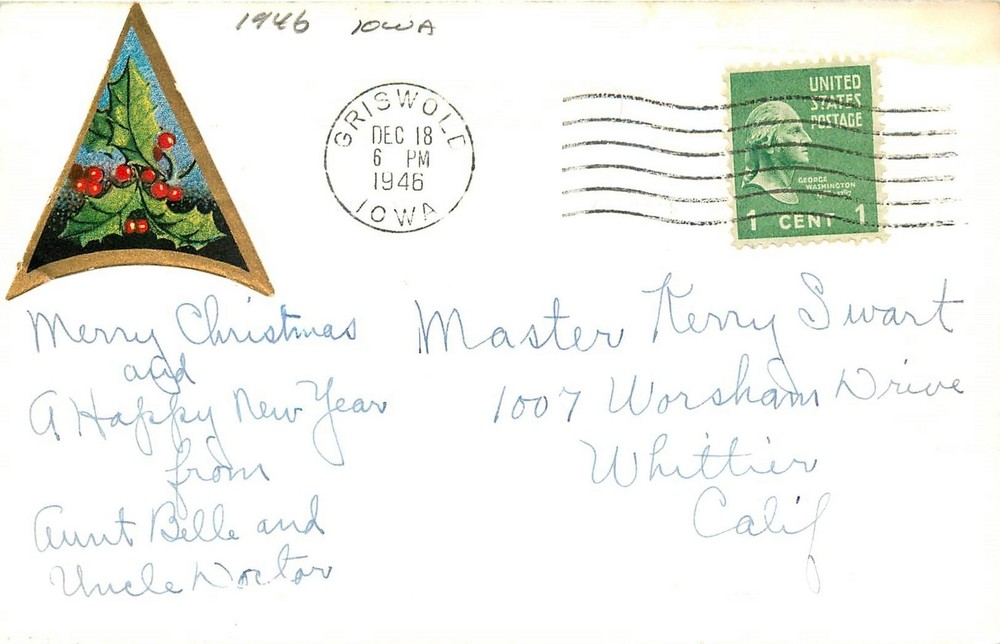 1946 IOWA
GRISWOLD
DEC 18
6 PM
1946
IOWA
UNITED
STATES
POSTAGE
GEORGE
WASHINGTON
1 CENT 1
Merry Christmas
and
A Happy New Year
from
Aunt Belle and
Uncle Doctor
Master Kerry Swart
1007 Worsham Drive
Whittier
Calif